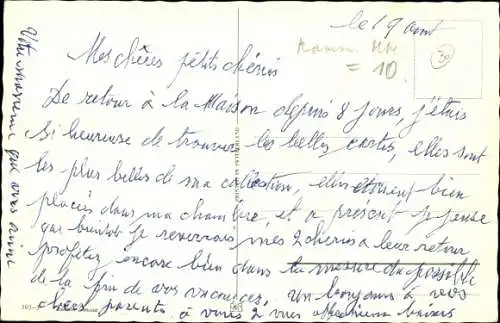 le 19 aout
30
= 10.
Mes chères petits chéris
De retour à la Maison depuis 8 jours, j'étais
si heureuse de trouver les belles cartes, elles sont
les plus belles de ma collection, elles étonnent bien
placées dans ma chambre, et a présent je pense
que bientôt je reverrais mes 2 chéris a leur retour
profitez encore bien dans la mesure du possible
de la fin de vos vacances, un bonjour à vos
chers parents à vous 2 mes affectueux baisers
Votre mamie qui vous aime